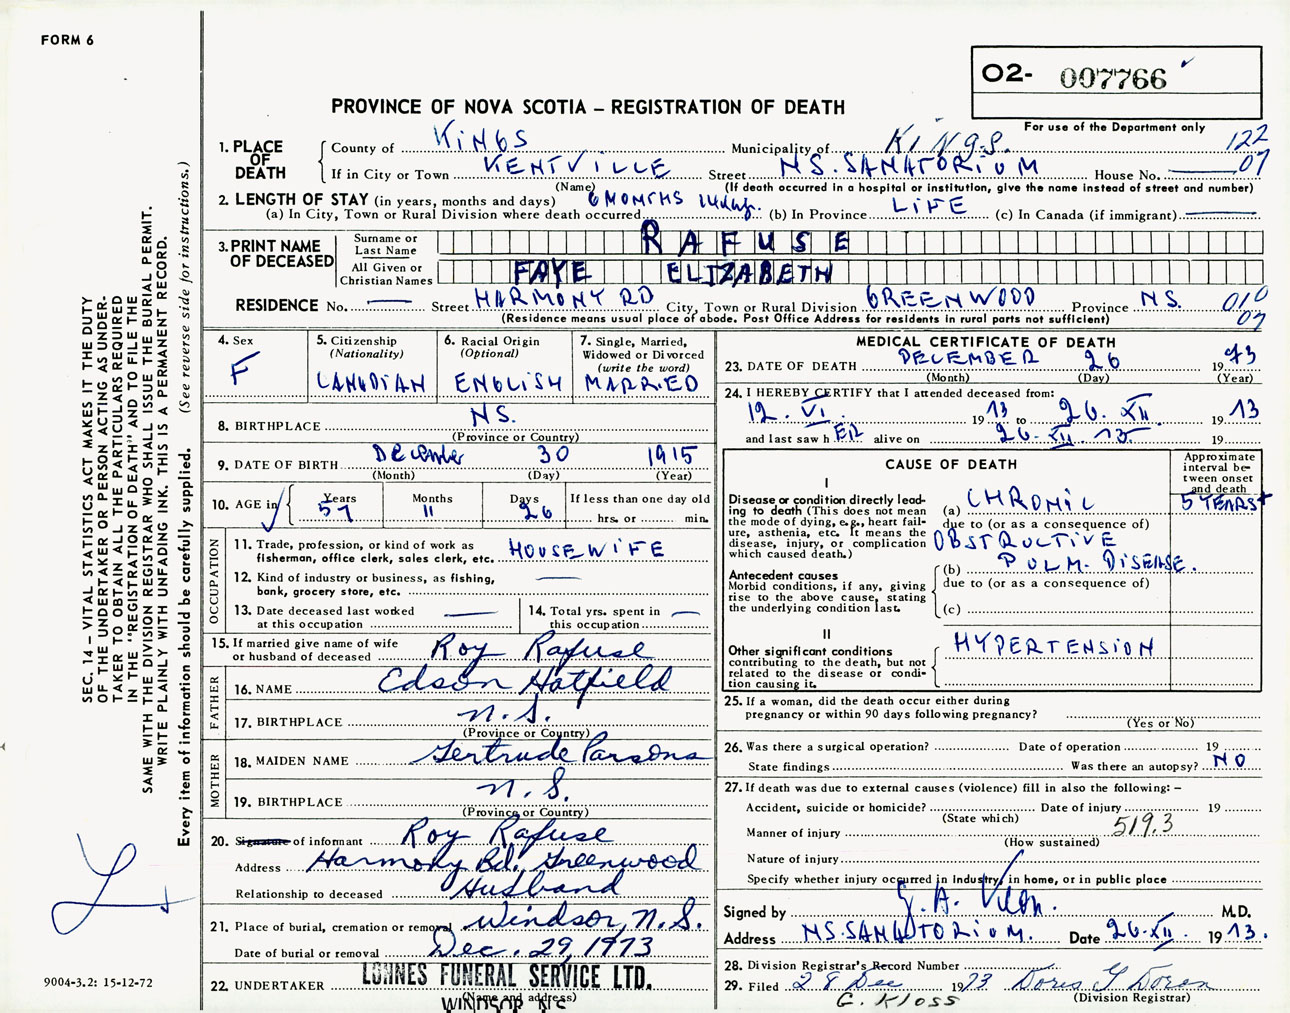 FORM 6
02- 007766
PROVINCE OF NOVA SCOTIA – REGISTRATION OF DEATH
For use of the Department only
122
07
1. PLACE OF DEATH
County of KINGS Municipality of KINGS.
If in City or Town KENTVILLE Street N.S. SANATORIUM House No.
(Name) (If death occurred in a hospital or institution, give the name instead of street and number)
2. LENGTH OF STAY (in years, months and days) 6 MONTHS 14 days.
(a) In City, Town or Rural Division where death occurred (b) In Province LIFE (c) In Canada (if immigrant)
3. PRINT NAME OF DECEASED
Surname or Last Name RAFUSE
All Given or Christian Names FAYE ELIZABETH
RESIDENCE No. — Street HARMONY RD City, Town or Rural Division GREENWOOD Province N.S. 010
(Residence means usual place of abode. Post Office Address for residents in rural parts not sufficient) 07
4. Sex F
5. Citizenship (Nationality) CANADIAN
6. Racial Origin (Optional) ENGLISH
7. Single, Married, Widowed or Divorced (write the word) MARRIED
8. BIRTHPLACE N.S.
(Province or Country)
9. DATE OF BIRTH December 30 1915
(Month) (Day) (Year)
10. AGE in Years 57 Months 11 Days 26 If less than one day old
hrs. or min.
OCCUPATION
11. Trade, profession or kind of work as fisherman, office clerk, sales clerk, etc. HOUSEWIFE
12. Kind of industry or business, as fishing, bank, grocery store, etc. —
13. Date deceased last worked at this occupation —
14. Total yrs. spent in this occupation —
15. If married give name of wife or husband of deceased Roy Rafuse
FATHER
16. NAME Edson Hatfield
17. BIRTHPLACE N.S.
(Province or Country)
MOTHER
18. MAIDEN NAME Gertrude Parsons
19. BIRTHPLACE N.S.
(Province or Country)
20. Signature of informant Roy Rafuse
Address Harmony Rd. Greenwood
Relationship to deceased Husband
21. Place of burial, cremation or removal Windsor, N.S.
Date of burial or removal Dec. 29, 1973
22. UNDERTAKER LOHNES FUNERAL SERVICE LTD.
(Name and address)
WINDSOR N.S.
MEDICAL CERTIFICATE OF DEATH
23. DATE OF DEATH DECEMBER 26 1973
(Month) (Day) (Year)
24. I HEREBY CERTIFY that I attended deceased from:
12. VI. 1973 to 26. XII 1973
and last saw hER alive on 26. XII. 73. 19
CAUSE OF DEATH
Approximate interval between onset and death
I
Disease or condition directly leading to death (This does not mean the mode of dying, e.g., heart failure, asthenia, etc. It means the disease, injury, or complication which caused death.)
(a) CHRONIC 5 YEARS +
due to (or as a consequence of)
OBSTRUCTIVE
(b) PULM. DISEASE.
due to (or as a consequence of)
(c)
Antecedent causes
Morbid conditions, if any, giving rise to the above cause, stating the underlying condition last.
II
Other significant conditions contributing to the death, but not related to the disease or condition causing it.
HYPERTENSION
25. If a woman, did the death occur either during pregnancy or within 90 days following pregnancy?
(Yes or No)
26. Was there a surgical operation? Date of operation 19
State findings Was there an autopsy? NO
27. If death was due to external causes (violence) fill in also the following: –
Accident, suicide or homicide? Date of injury 19
(State which) 519.3
Manner of injury
(How sustained)
Nature of injury
Specify whether injury occurred in Industry, in home, or in public place
Signed by M.D.
Address N.S. SANATORIUM. Date 26. XII. 1973.
28. Division Registrar's Record Number
29. Filed 28 Dec 1973 Doris Y Doran
(Division Registrar)
G. Kloss
SEC. 14 – VITAL STATISTICS ACT MAKES IT THE DUTY
OF THE UNDERTAKER OR PERSON ACTING AS UNDER-
TAKER TO OBTAIN ALL THE PARTICULARS REQUIRED
IN THE "REGISTRATION OF DEATH" AND TO FILE THE
SAME WITH THE DIVISION REGISTRAR WHO SHALL ISSUE THE BURIAL PERMIT.
WRITE PLAINLY WITH UNFADING INK. THIS IS A PERMANENT RECORD.
Every item of information should be carefully supplied. (See reverse side for instructions.)
9004-3.2: 15-12-72